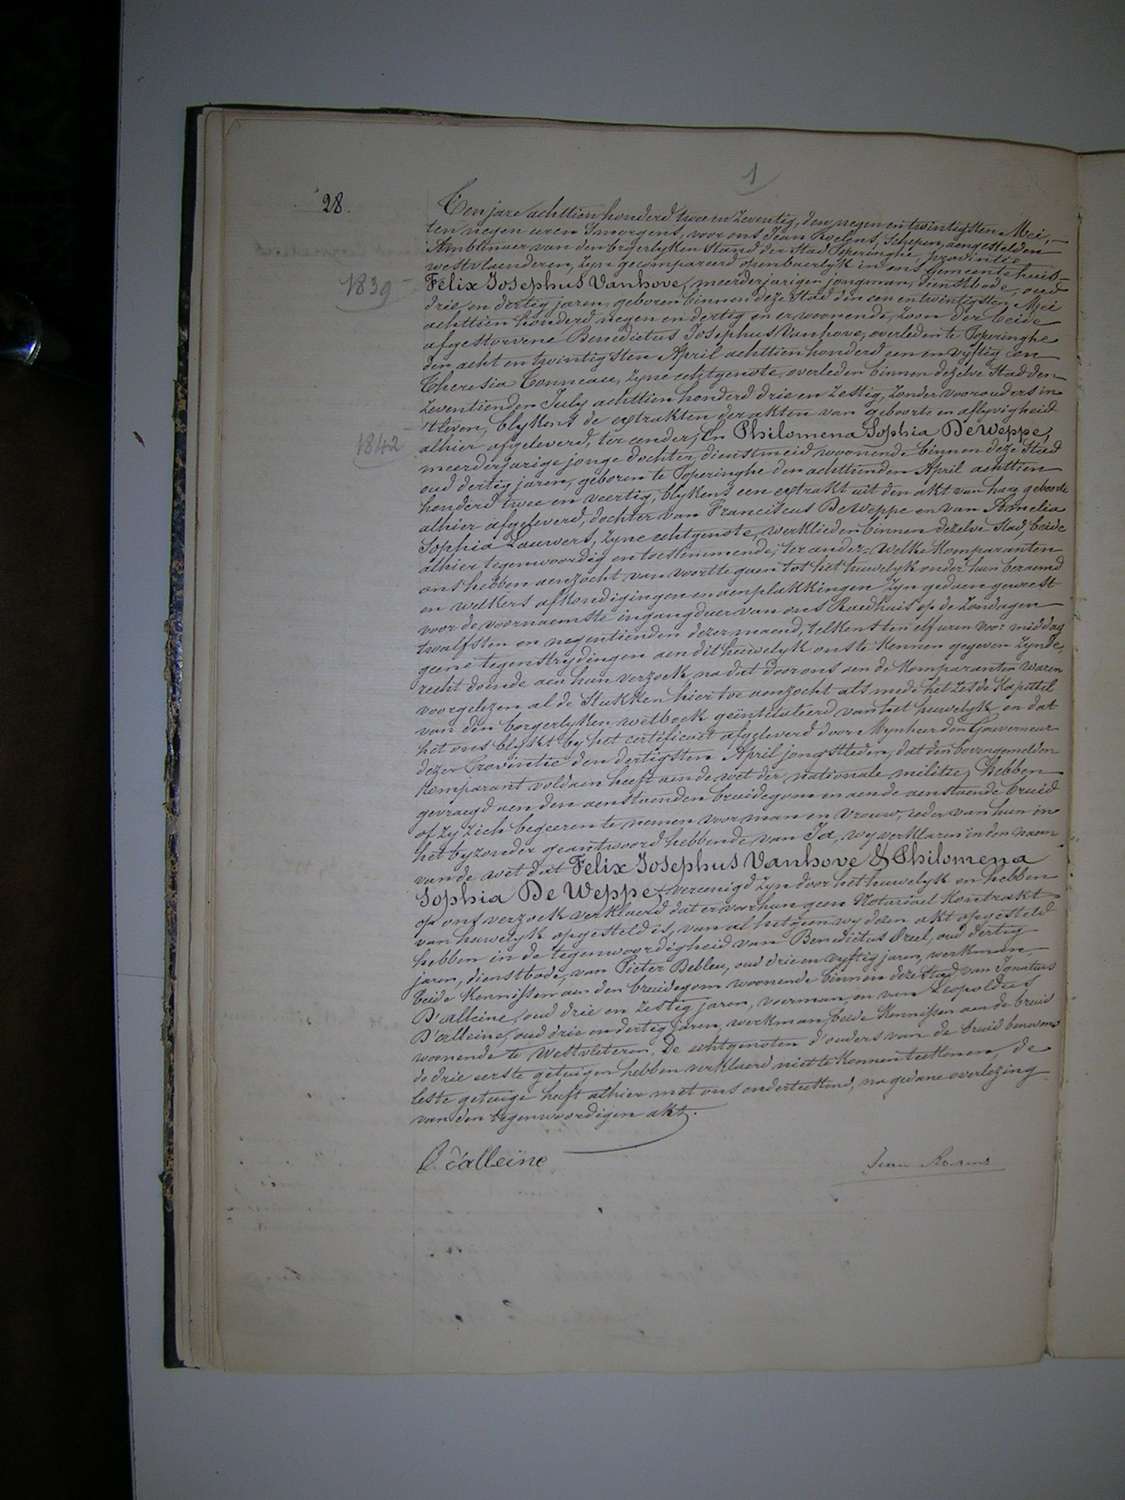 1
28.
Ten jare achttien honderd twee en Zeventig, den negen en twintigsten Mei,
ten negen uren 'smorgens, voor ons Jean Roelens, Schepen, aengestelden
Ambtenaer van den borgerlyken Stand der Stad Poperinghe, provintie
westvlaenderen, zyn gecompareerd openbaerlyk in ons gemeentehuis
1839
Felix Josephus Vanhove, meerderjarigen jongman, dienstbode, oud
drie en dertig jaren, geboren binnen deze Stad den een en twintigsten Mei
achttien honderd negen en dertig en er woonende, zoon der beide
afgestorvene Benedictus Josephus Vanhove, overleden te Poperinghe
den acht en twintigsten April achttien honderd een en vyftig en
Theresia Conneau, zyne echtgenote, overleden binnen dezelve Stad den
Zeventienden July achttien honderd drie en Zestig, zonder voorouders in
't leven, blykens de extrakten der akten van geboorte en aflyvigheid
1842
alhier afgeleverd, ter eender; En Philomena Sophia De Weppe,
meerderjarige jonge dochter, dienstmeid, woonende binnen deze Stad
oud dertig jaren, geboren te Poperinghe den achttienden April achttien
honderd twee en veertig, blykens een extrakt uit den akt van hare geboorte
alhier afgeleverd, dochter van Franciscus De Weppe en van Amelia
Sophia Lauwers, zyne echtgenote, werklieden binnen dezelve Stad, beide
alhier tegenwoordig en toestemmende, ter ander. Welke komparanten
ons hebben aenzocht van voort te gaen tot het huwelyk onder hun beraemd
en welkers afkondigingen en aenplakkingen zyn gedaen geweest
voor de voornaemste ingangdeur van ons Raedhuis op de Zondagen
twalfsten en negentienden dezer maend, telkens ten elf uren voor middag
geene tegenstrydingen aen dit huwelyk ons te kennen gegeven zynde,
recht doende aen hun verzoek, na dat door ons aen de komparanten waren
voorgelezen al de Stukken hier toe aenzocht als mede het Zesde kapittel
van den borgerlyken wetboek geïntituleerd van het huwelyk en dat
het ons blykt by het certificaet afgeleverd door Mynheer den Gouverneur
dezer Provintie den dertigsten April jongstleden, dat den bovengemelden
komparant voldaen heeft aen de wet der nationale militie, Hebben
gevraegd aen den aenstaenden bruidegom en aen de aenstaende bruid
of zy zich begeeren te nemen voor man en vrouw, ieder van hun in
het byzonder geantwoord hebbende van Ja, wy verklaren in den naem
van de wet dat Felix Josephus Vanhove & Philomena
Sophia De Weppe, vereenigd zyn door het huwelyk en hebben
op ons verzoek verklaerd dat er voor hun geen Notarieel Kontrakt
van huwelyk opgesteld is, van al hetgeen wy dezen akt opgesteld
hebben in de tegenwoordigheid van Benedictus Dreel, oud dertig
jaren, dienstbode, van Pieter Deblen, oud drie en vyftig jaren, werkman,
beide kennissen aen den bruidegom woonende binnen deze stad, van Ignatius
D'alleine, oud drie en Zestig jaren, voerman, en van Leopoldus
D'alleine, oud drie en dertig jaren, werkman, beide kennissen aen de bruid
woonende te Westvleteren. De echtgenoten d'ouders van de bruid benevens
de drie eerste getuigen hebben verklaerd niet te kunnen teekenen, de
leste getuige heeft alhier met ons onderteekend, na gedane overlezing
van den tegenwoordigen akt.
L. d'alleine
Jean Roelens